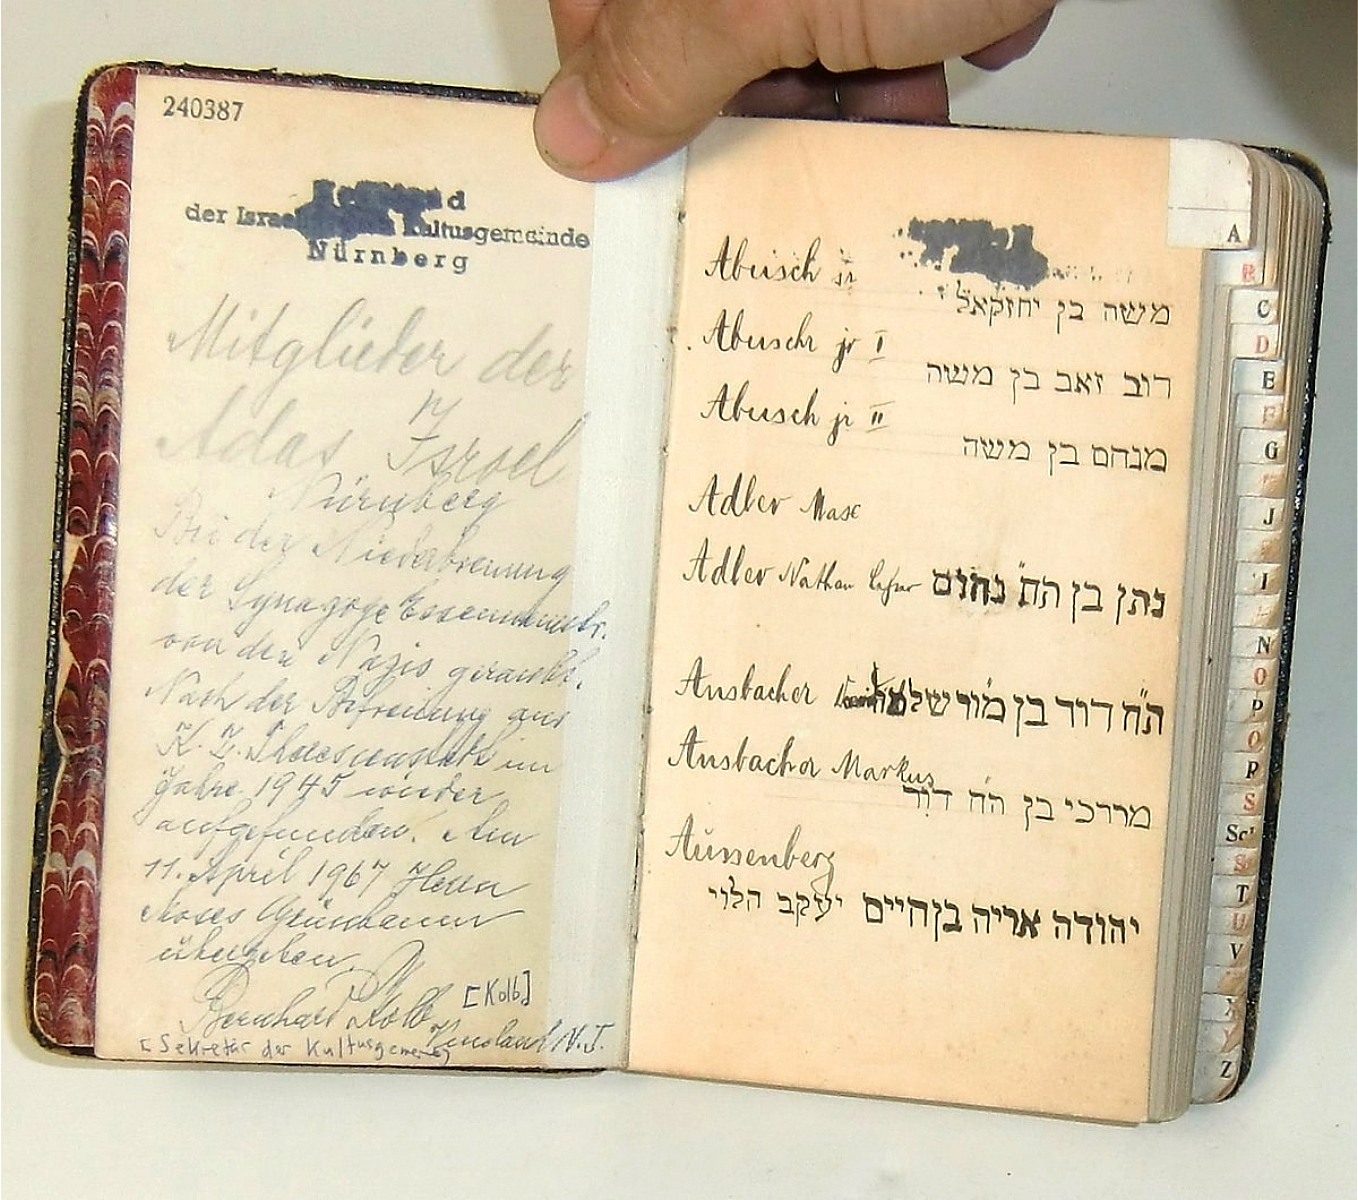 240387
d
der Israe Kultusgemeinde
Nürnberg
Mitglieder der
Adas Israel
Nürnberg
Bei der Niederbrennung
der Synagoge Essenweinstr.
von den Nazis geraubt.
Nach der Befreiung aus
K. Z. Theresienstadt im
Jahre 1945 wieder
aufgefunden. Am
11. April 1967 Herrn
Moses Grünbaum
übergeben.
Bernhard Kolb [Kolb]
Vineland N.J.
[Sekretär der Kultusgemeinde]
Abusch sr
משה בן יחזקאל
Abusch jr I
דוב זאב בן משה
Abusch jr II
מנחם בן משה
Adler Max
Adler Nathan Lehrer נתן בן הח' נחום
Ansbacher הח דוד בן מור שלמה
Ansbacher Markus
מרדכי בן הח דוד
Aussenberg
יהודה אריה בן חיים יעקב הלוי
A
B
C
D
E
F
G
J
N
O
P
Q
R
S
Sch
St
T
U
V
X
Y
Z